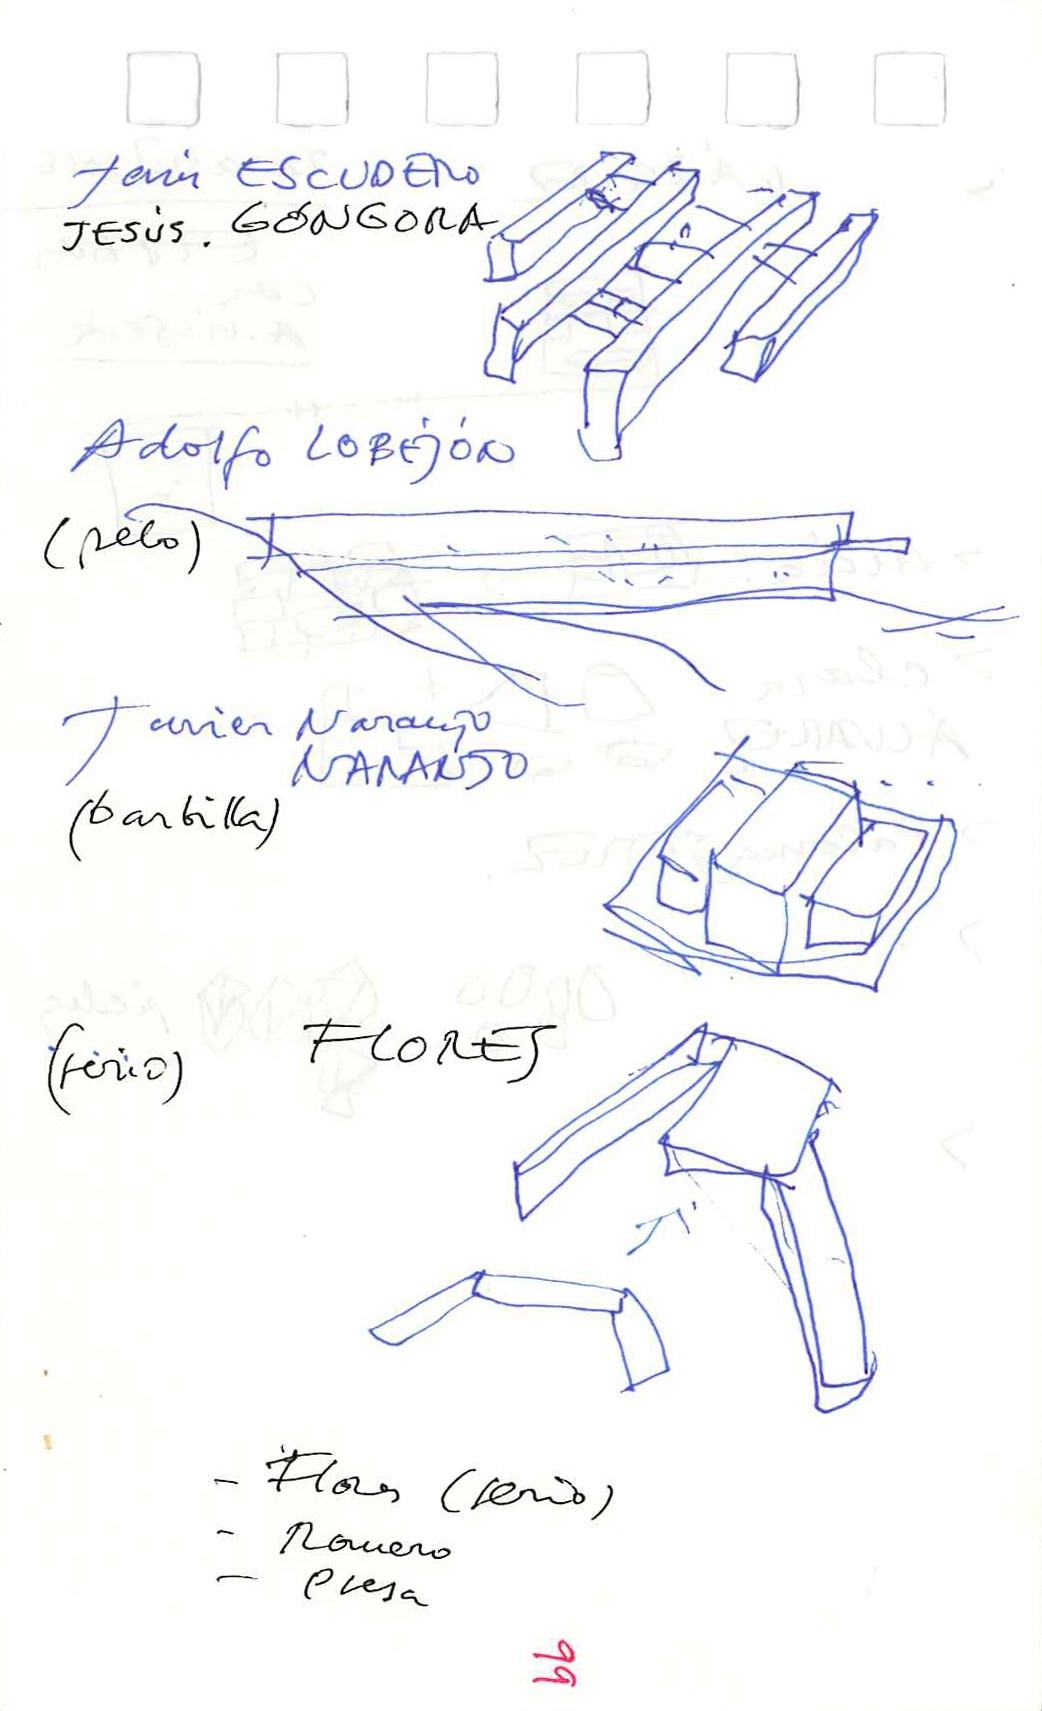 Javier ESCUDERO
JESÚS. GÓNGORA
Adolfo LOBEJÓN
(pelo)
Javier Naranjo
NARANJO
(barbilla)
(serio) FLORES
- Flores (serio)
- Romero
- Presa
99